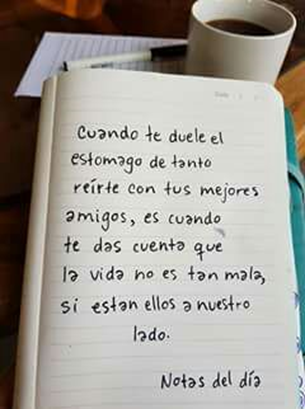 Cuando te duele el
estomago de tanto
reírte con tus mejores
amigos, es cuando
te das cuenta que
la vida no es tan mala,
si estan ellos a nuestro
lado.
Notas del día